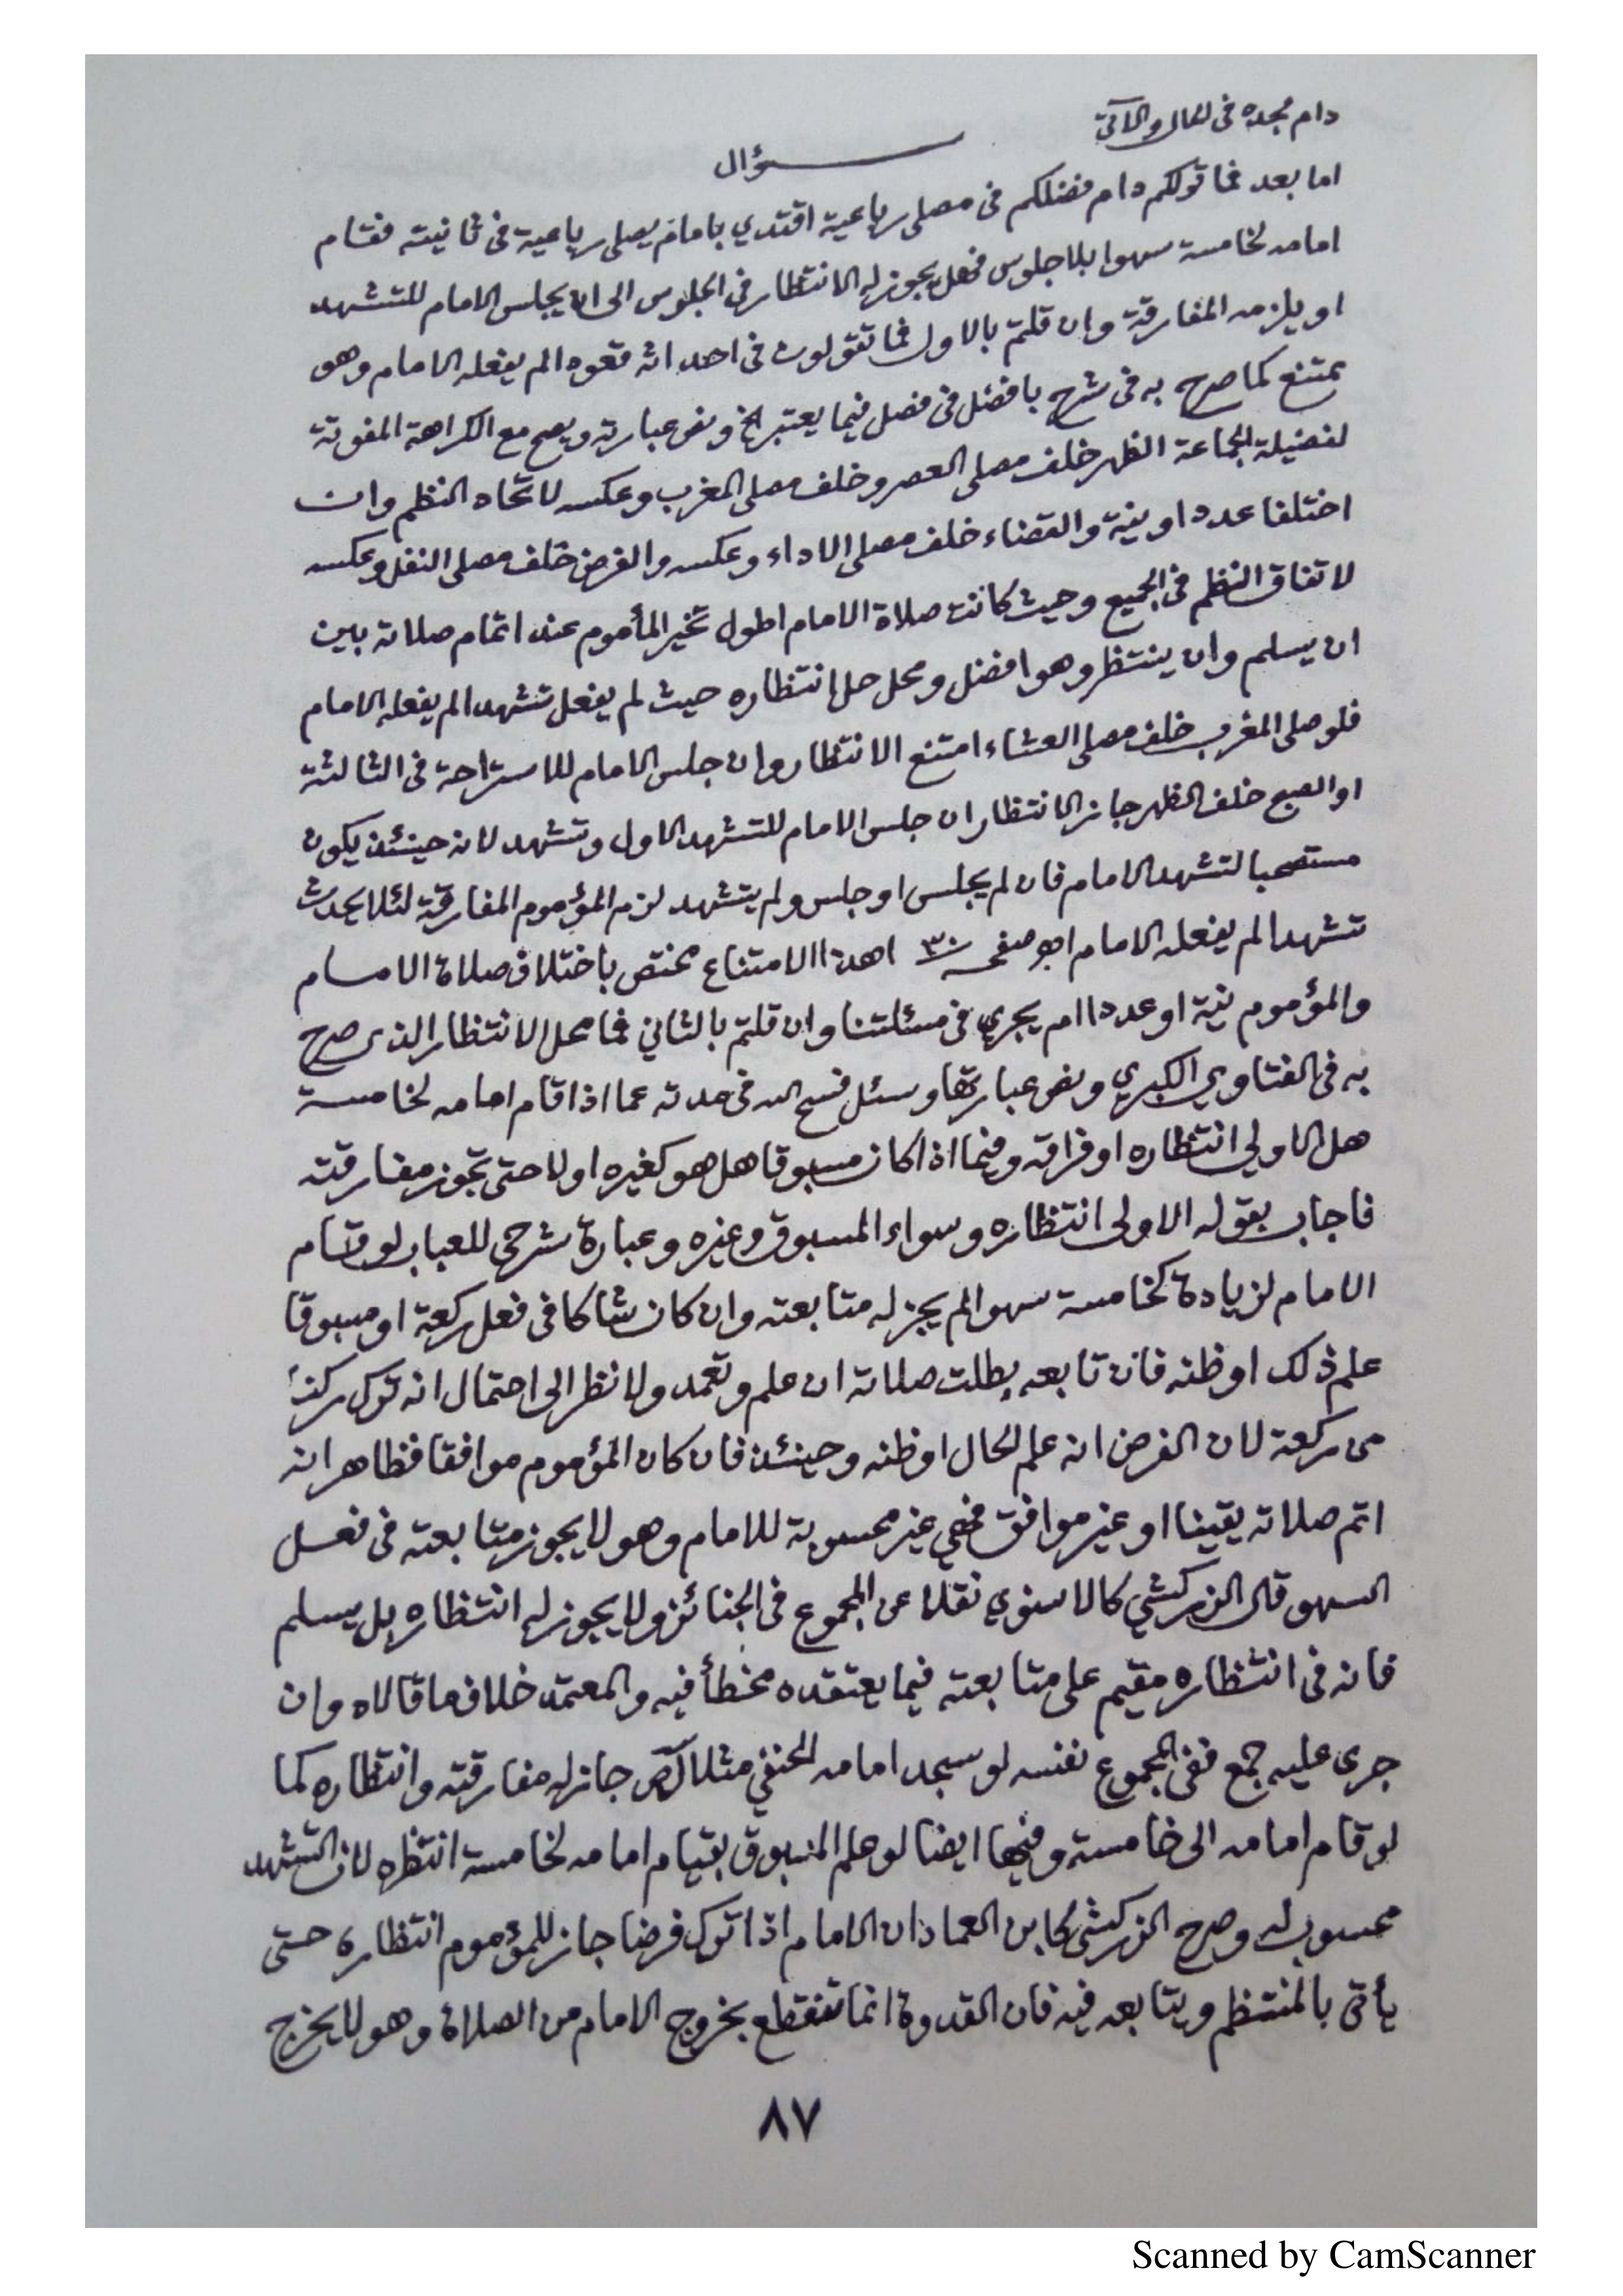 دام مجده فى الحال والآتى
سؤال
اما بعد فما قولكم دام فضلكم فى مصلى رباعية اقتدي بامام يصلى رباعية فى ثانيته فقام
امامه لخامسة سهوا بلا جلوس فهل يجوز له الانتظار فى الجلوس الى ان يجلس الامام للتشهد
او يلزمه المفارقة وان قلتم بالاول فما تقولون فى احداثه قعودا لم يفعله الامام وهو
ممتنع كما صرح به فى شرح بافضل فى فصل فيما يعتبر الخ ونص عبارته ويصح مع الكراهة المفوتة
لفضيلة الجماعة الظهر خلف مصلى العصر وخلف مصلى المغرب وعكسه لاتحاد النظم وان
اختلفا عددا ونية والقضاء خلف مصلى الاداء وعكسه والفرض خلف مصلى النفل وعكسه
لاتفاق النظم فى الجميع وحيث كانت صلاة الامام اطول تخير المأموم عند اتمام صلاته بين
ان يسلم وان ينتظر وهو افضل ومحل حل انتظاره حيث لم يفعل تشهدا لم يفعله الامام
فلو صلى المغرب خلف مصلى العشاء امتنع الانتظار وان جلس الامام للاستراحة فى الثالثة
او الصبح خلف الظهر جاز الانتظار ان جلس الامام للتشهد الاول وتشهد لانه حينئذ يكون
مستصحبا لتشهد الامام فان لم يجلس او جلس ولم يتشهد لزم المؤموم المفارقة لئلا يحدث
تشهدا لم يفعله الامام اهو صفحـ ٣٠ اهذا الامتناع مختص باختلاف صلاة الامام
والمؤموم نية او عددا ام يجري فى مسئلتنا وان قلتم بالثاني فما محل الانتظار الذى صرح
به فى الفتاوي الكبري ونص عبارتها وسئل فسح الله فى مدته عما اذا قام امامه لخامسة
هل الاولي انتظاره او فراقه وفيما اذا كان مسبوقا هل هو كغيره اولا حتى تجوز مفارقته
فاجاب بقوله الاولى انتظاره وسواء المسبوق وغيره وعبارة شرحى للعباب لو قام
الامام لزيادة كخامسة سهوا لم يجز له متابعته وان كان شاكا فى فعل ركعة او مسبوقا
علم ذلك او ظنه فان تابعه بطلت صلاته ان علم وتعمد ولا نظر الى احتمال انه ترك ركنا
من ركعة لان الفرض انه علم الحال او ظنه وحينئذ فان كان المؤموم موافقا فظاهر انه
اتم صلاته يقينا او غير موافق فهي غير محسوبة للامام وهو لا يجوز متابعته فى فعل
السهو قال الزركشي كالاسنوي نقلا عن المجموع فى الجنائز ولا يجوز له انتظاره بل يسلم
فانه فى انتظاره مقيم على متابعته فيما يعتقده مخطأ فيه والمعتمد خلاف ما قالاه وان
جرى عليه جمع ففى المجموع نفسه لو سجد امامه الحنفي مثلا لـص جاز له مفارقته وانتظاره كما
لو قام امامه الى خامسة وفيها ايضا لو علم المسبوق بقيام امامه لخامسة انتظره لان التشهد
محسوب له وصرح الزركشى كابن العماد ان الامام اذا ترك فرضا جاز للمؤموم انتظاره حتى
يأتى بالمنتظم ويتابعه فيه فان القدوة انما تنقطع بخروج الامام من الصلاة وهو لا يخرج
٨٧
Scanned by CamScanner